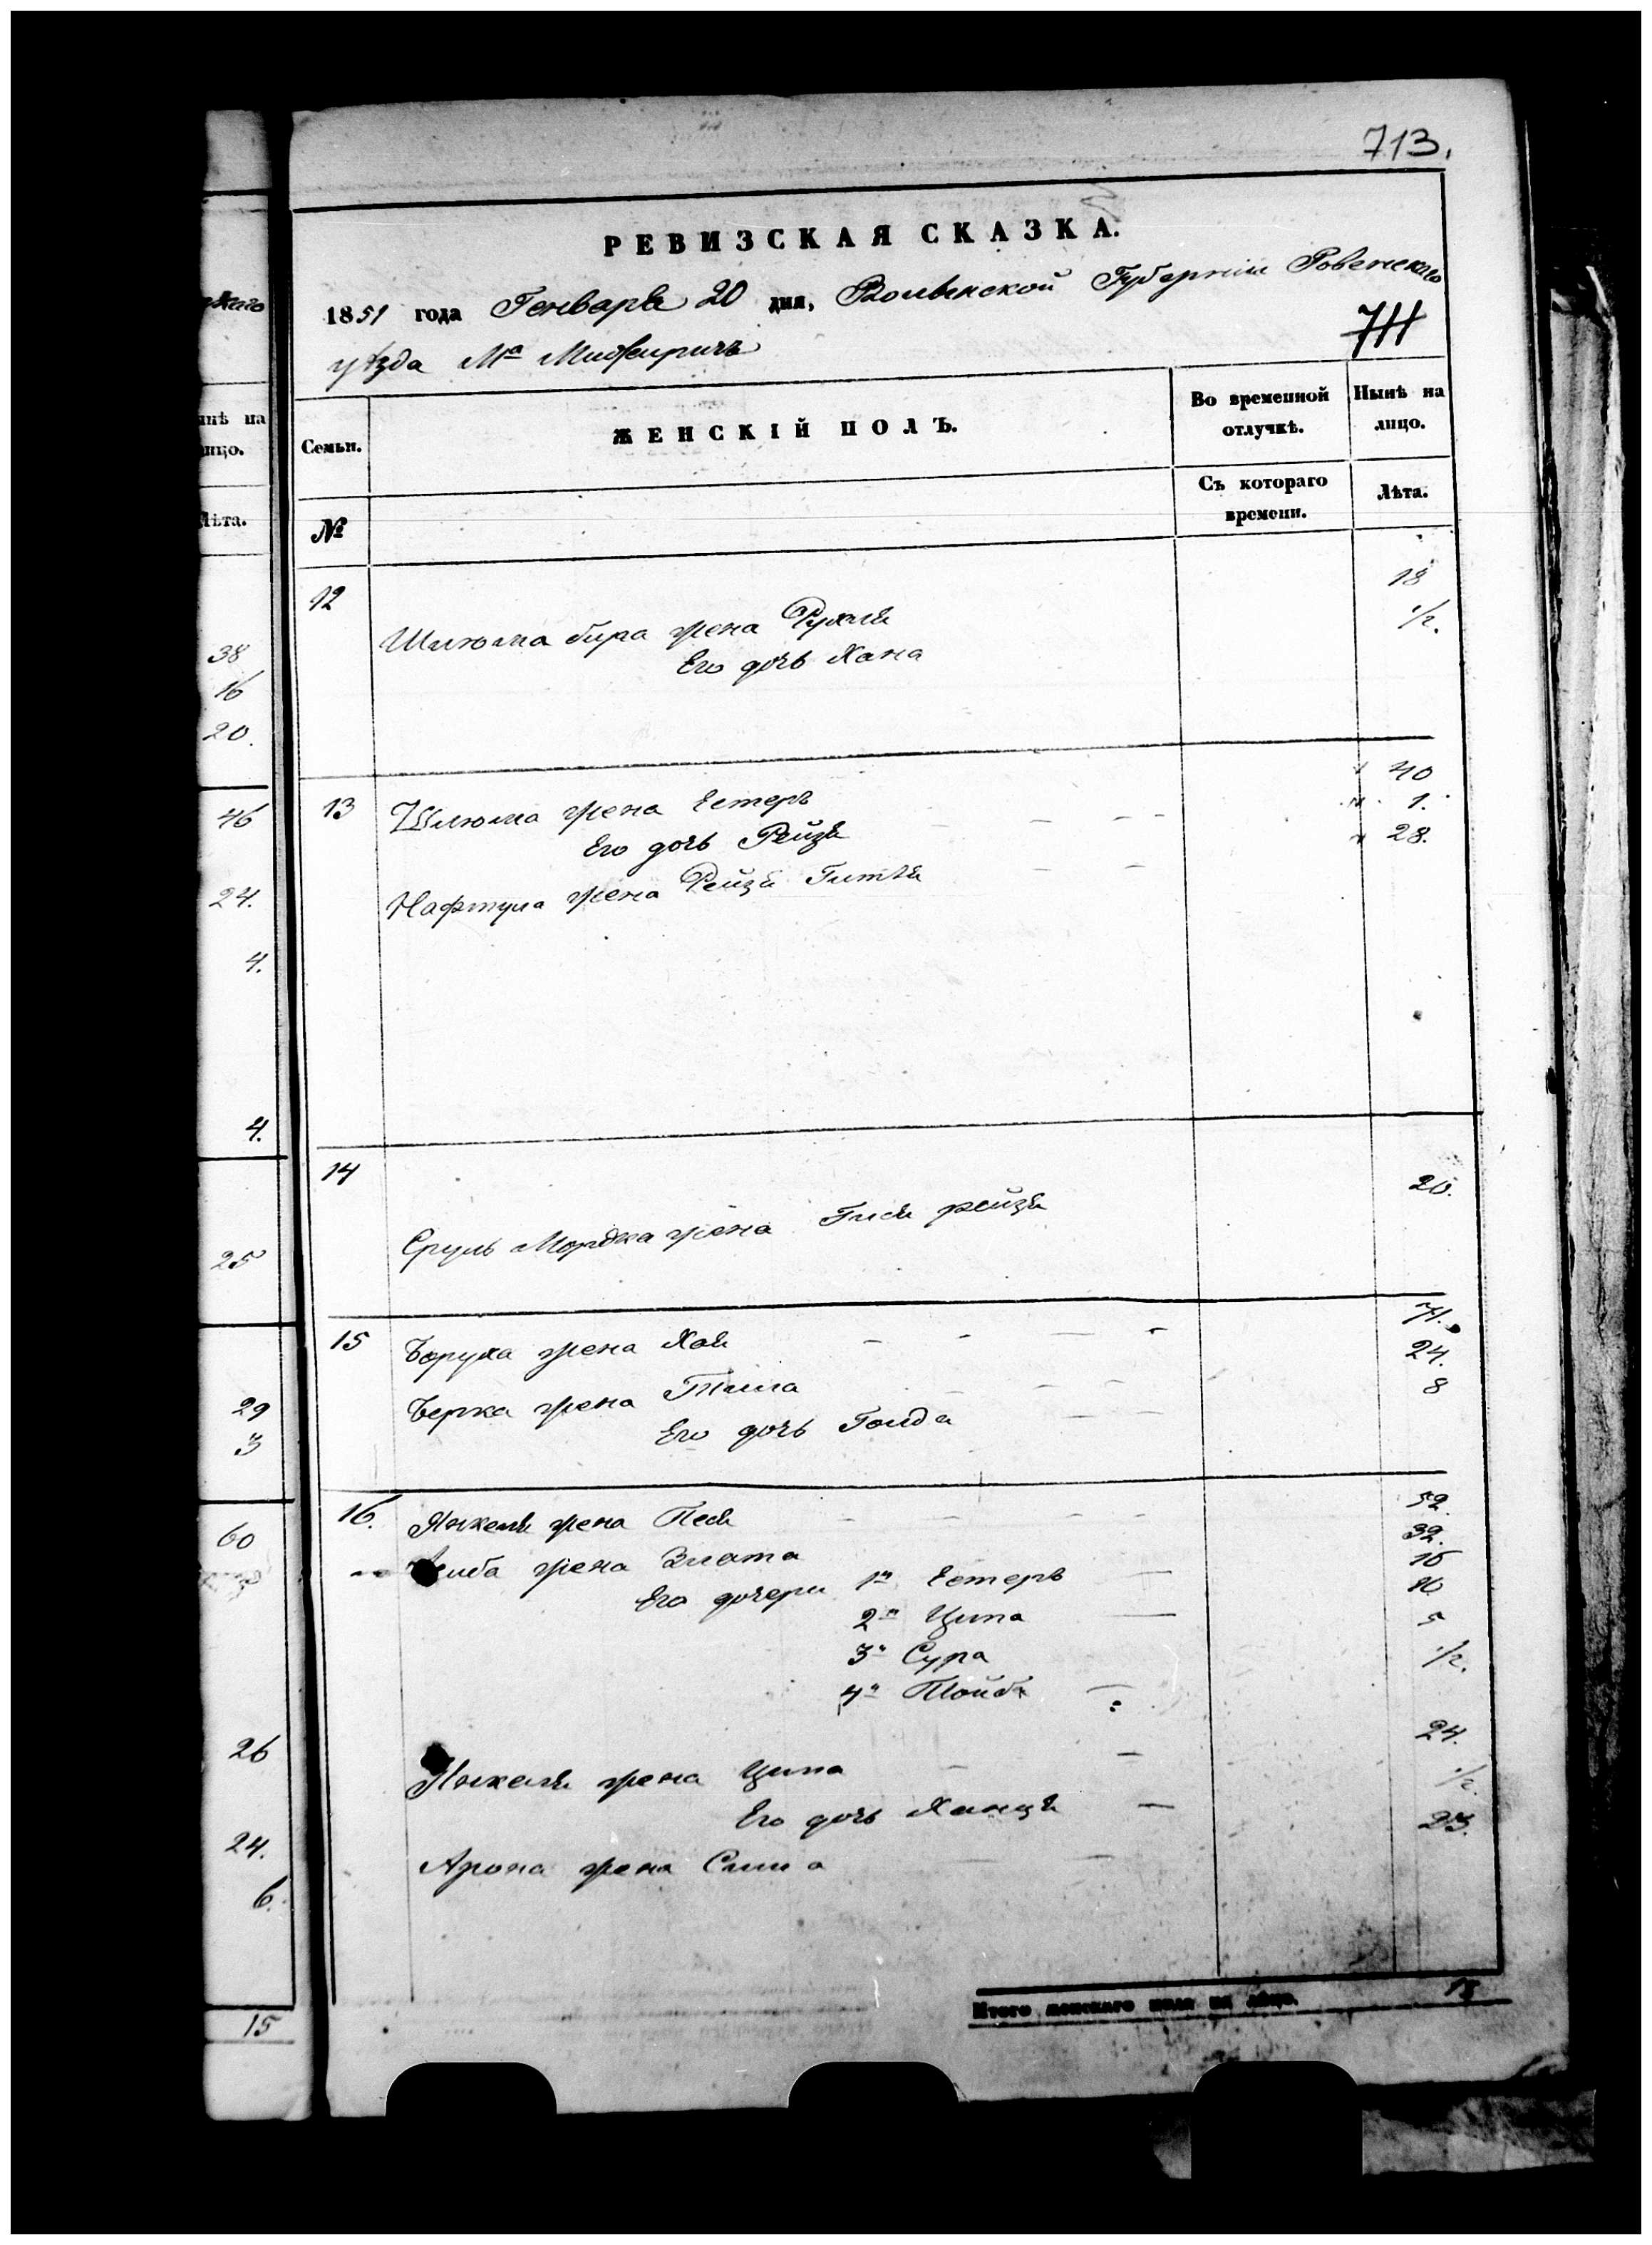 713.
РЕВИЗСКАЯ СКАЗКА.
1851 года Генваря 20 дня, Волынской Губернии Ровенскаго
711
уѣзда Мᵃ Мидзиричъ
Семьи.
ЖЕНСКІЙ ПОЛЪ.
Во временной отлучкѣ.
Нынѣ на лицо.
№
Съ котораго времени.
Лѣта.
12
Шлиома бира жена Рухля 18
Его дочь Хана 1/2.
13 Шлиома жена Естеръ 40
Его дочь Рейзя 1.
Нафтула жена Рейзя Гитля 28.
14
Сруль Мордка жена Гися рейзя 20.
15 Боруха жена Хая 71.
Берка жена 24.
Его дочь Голда 8
16. Янкеля жена Песя 52.
жена Злата 32.
Его дочери 1ᵃ Естеръ 16
2ᵃ Ципа 10
3ᵃ Сура 5
4ᵃ Тойба 1/2.
Янкеля жена Ципа 24.
Его дочь Ханця 1/2
Арона жена Сима 23.
Итого женскаго пола на лицо.
скаго
нѣ на
ицо.
Лѣта.
38
16
20.
46
24.
4.
4.
25
29
3
60
26
24.
6.
15